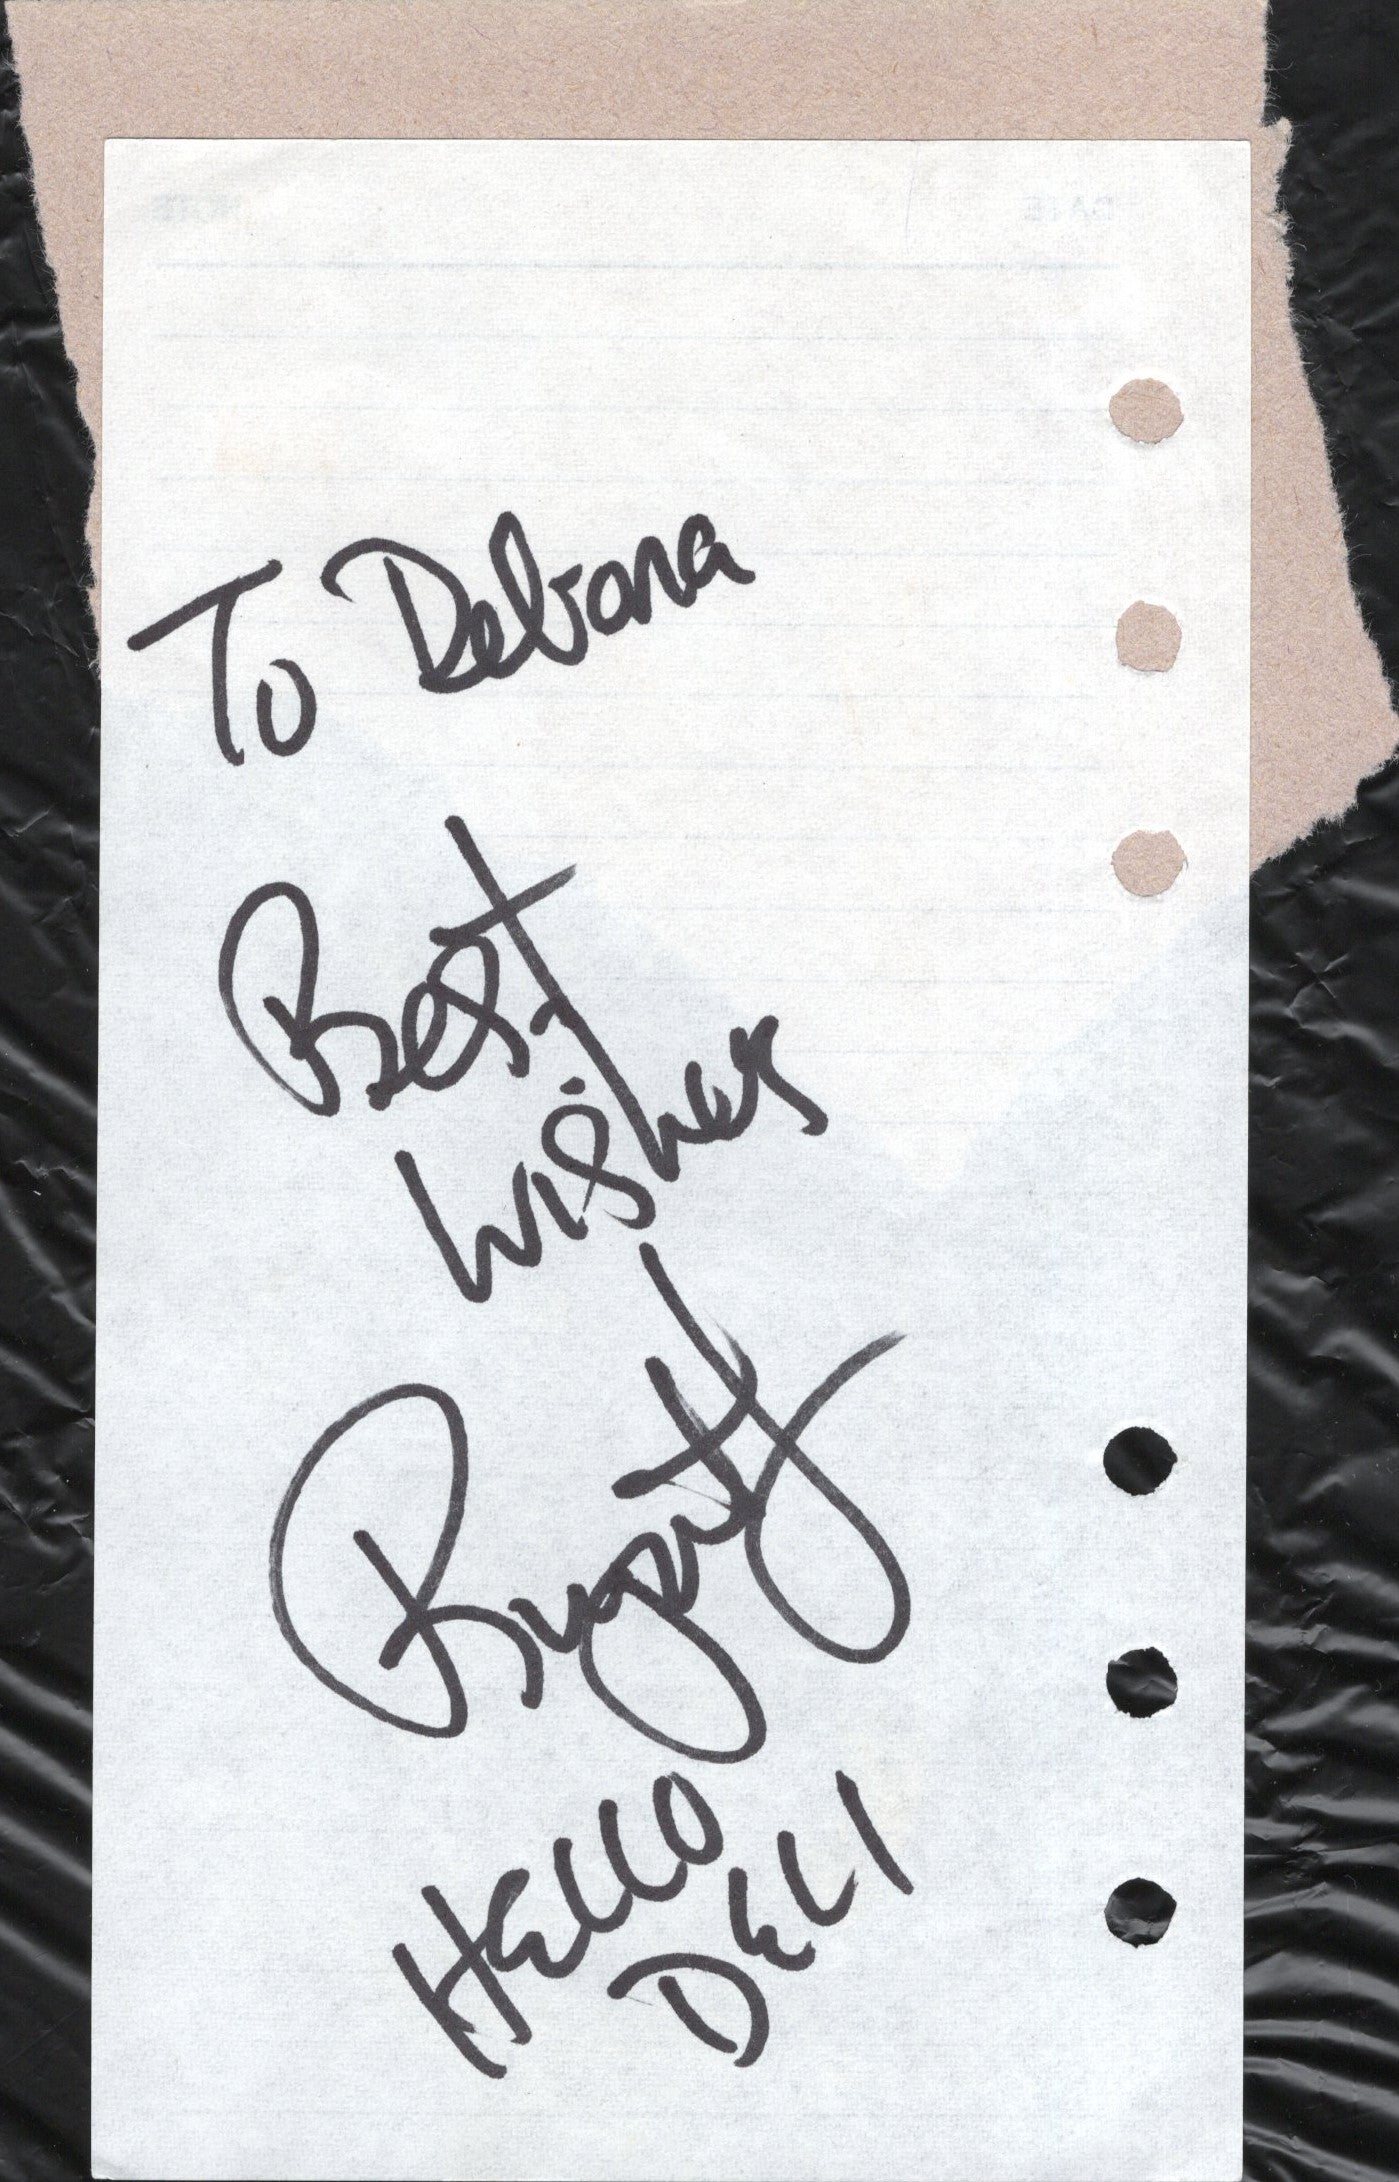 To Debona
Best
Wishes
Rupert J
HELLO
DELI